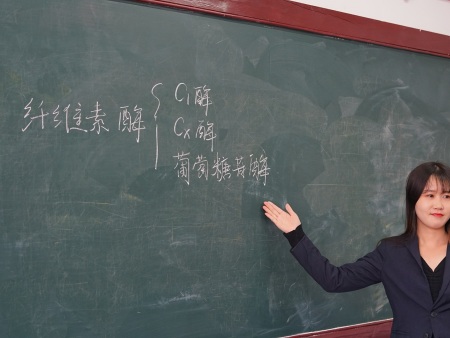 纤维素酶
C₁酶
Cx酶
葡萄糖苷酶